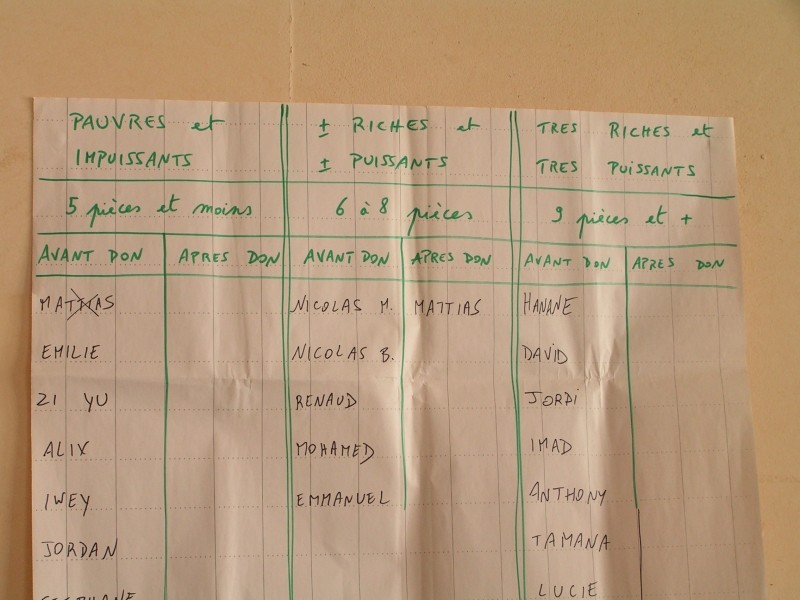 PAUVRES et ± RICHES et TRES RICHES et
IMPUISSANTS ± PUISSANTS TRES PUISSANTS
5 pièces et moins 6 à 8 pièces 9 pièces et +
AVANT DON APRES DON AVANT DON APRES DON AVANT DON APRES DON
MATTIAS NICOLAS M. MATTIAS HANANE
EMILIE NICOLAS B. DAVID
ZI YU RENAUD JORDI
ALIX MOHAMED IMAD
IWEY EMMANUEL ANTHONY
JORDAN TAMANA
LUCIE